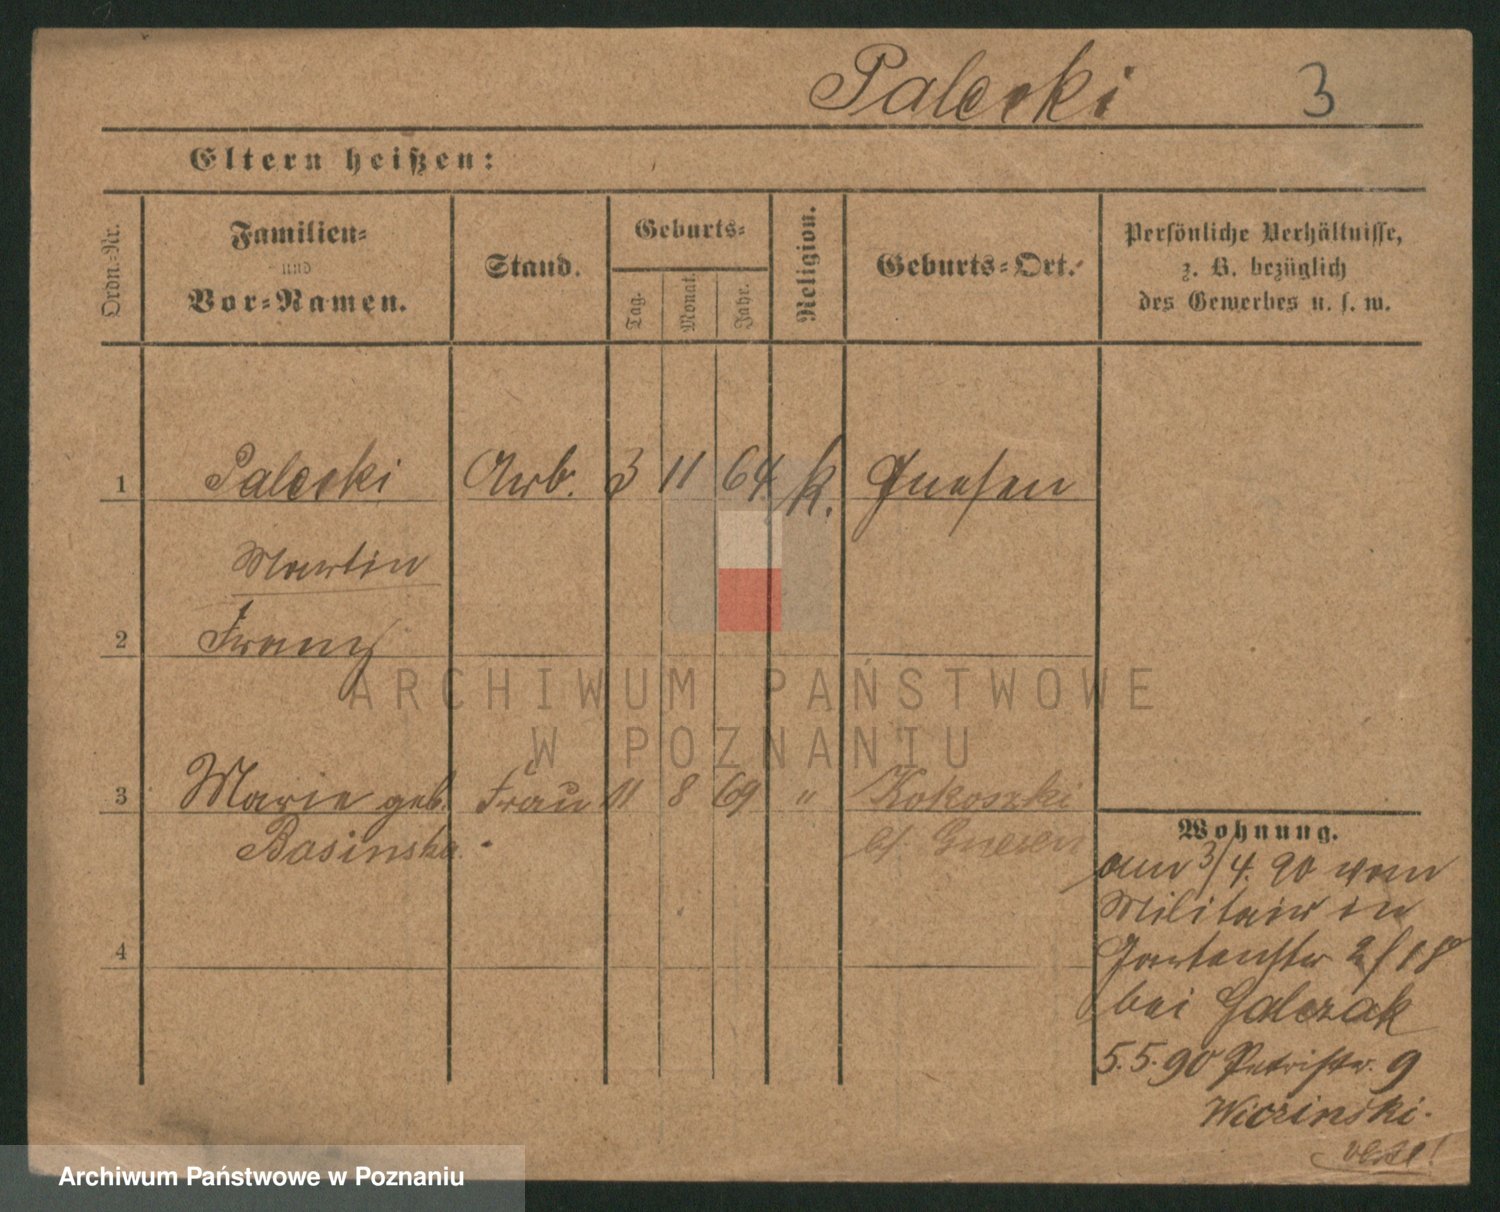 Palecki 3
Eltern heißen:
Ordn.-Nr.
Familien-
und
Vor-Namen.
Stand.
Geburts-
Tag.
Monat.
Jahr.
Religion.
Geburts-Ort.
Persönliche Verhältnisse,
z. B. bezüglich
des Gewerbes u. s. w.
1 Palecki Arb. 3 11 64 k. Gnesen
Martin
2 Franz
3 Marie geb. Frau 11 8 69 " Kokoszki
Basinska. b/ Gnesen
Wohnung.
am 3/4. 90 vom
Militair in
Gartenstr 2/18
bei Galczak
4
5.5.90 Petristr. 9
Wiczinski.
ARCHIWUM PAŃSTWOWE
W POZNANIU
Archiwum Państwowe w Poznaniu